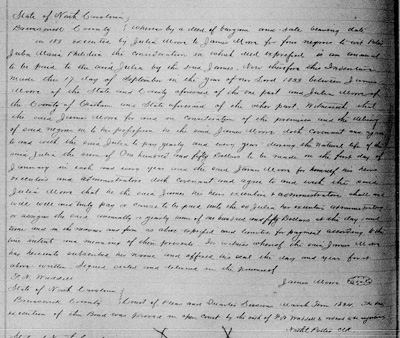 State of North Carolina
Brunswick County } Whereas by a deed of bargain and sale bearing date
in 183 executed by Julia Moore to James Moore for four negroes to wit
Julia Maria the consideration in which deed expressed is an amount
to be paid to the said Julia by the said James. Now therefore this Indenture
made this 17 day of September in the year of our Lord 1833 between James
Moore of the State and County aforesaid of the one part and Julia Moore of
the County of Chatham and State aforesaid of the other part. Witnesseth that
the said James Moore for and in consideration of the premises and the delivery
of said negroes in to the possession the said James Moore doth covenant and agree
to and with the said Julia to pay yearly and every year during the natural life of the
said Julia the sum of One hundred and fifty Dollars to be made on the first day of
January in each and every year and the said James Moore for himself his heirs
executors and administrators doth covenant and agree to and with the said
Julia Moore that he the said James his heirs executors & administrators shall and
will well and truly pay or cause to be paid unto the sd Julia her executors administrators
or assigns the said annually a yearly sum of one hundred and fifty Dollars at the day and
time and in the manner and form as above expressed and limited for payment according to the
true intent and meaning of these presents. In witness whereof the said James Moore
has hereunto subscribed his name and affixed his seal the day and year first
above written Signed sealed and delivered in the presence of
F. N. Waddell James Moore (Seal)
State of North Carolina
Brunswick County } Court of Pleas and Quarter Sessions March Term 1834. The
execution of this Bond was proved in open court by the oath of F N Waddell & ordered to be registered
Nathl Potter Clk